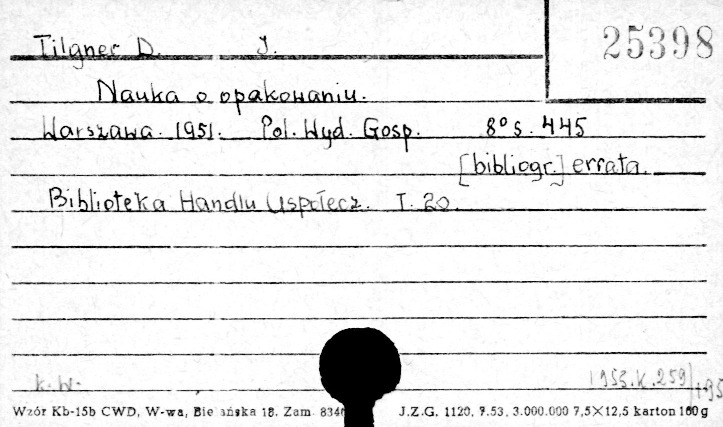 25398
Tilgner D. J.
Nauka o opakowaniu.
Warszawa. 1951. Pol. Wyd. Gosp. 8° s. 445
[bibliogr.] errata.
Biblioteka Handlu Uspołecz. T. 20.
k. W. 1953.K.259
Wzór Kb-15b CWD, W-wa, Bie ańska 18. Zam. 834 J.Z.G. 1120, 7.53, 3.000.000 7,5×12,5 karton 160 g